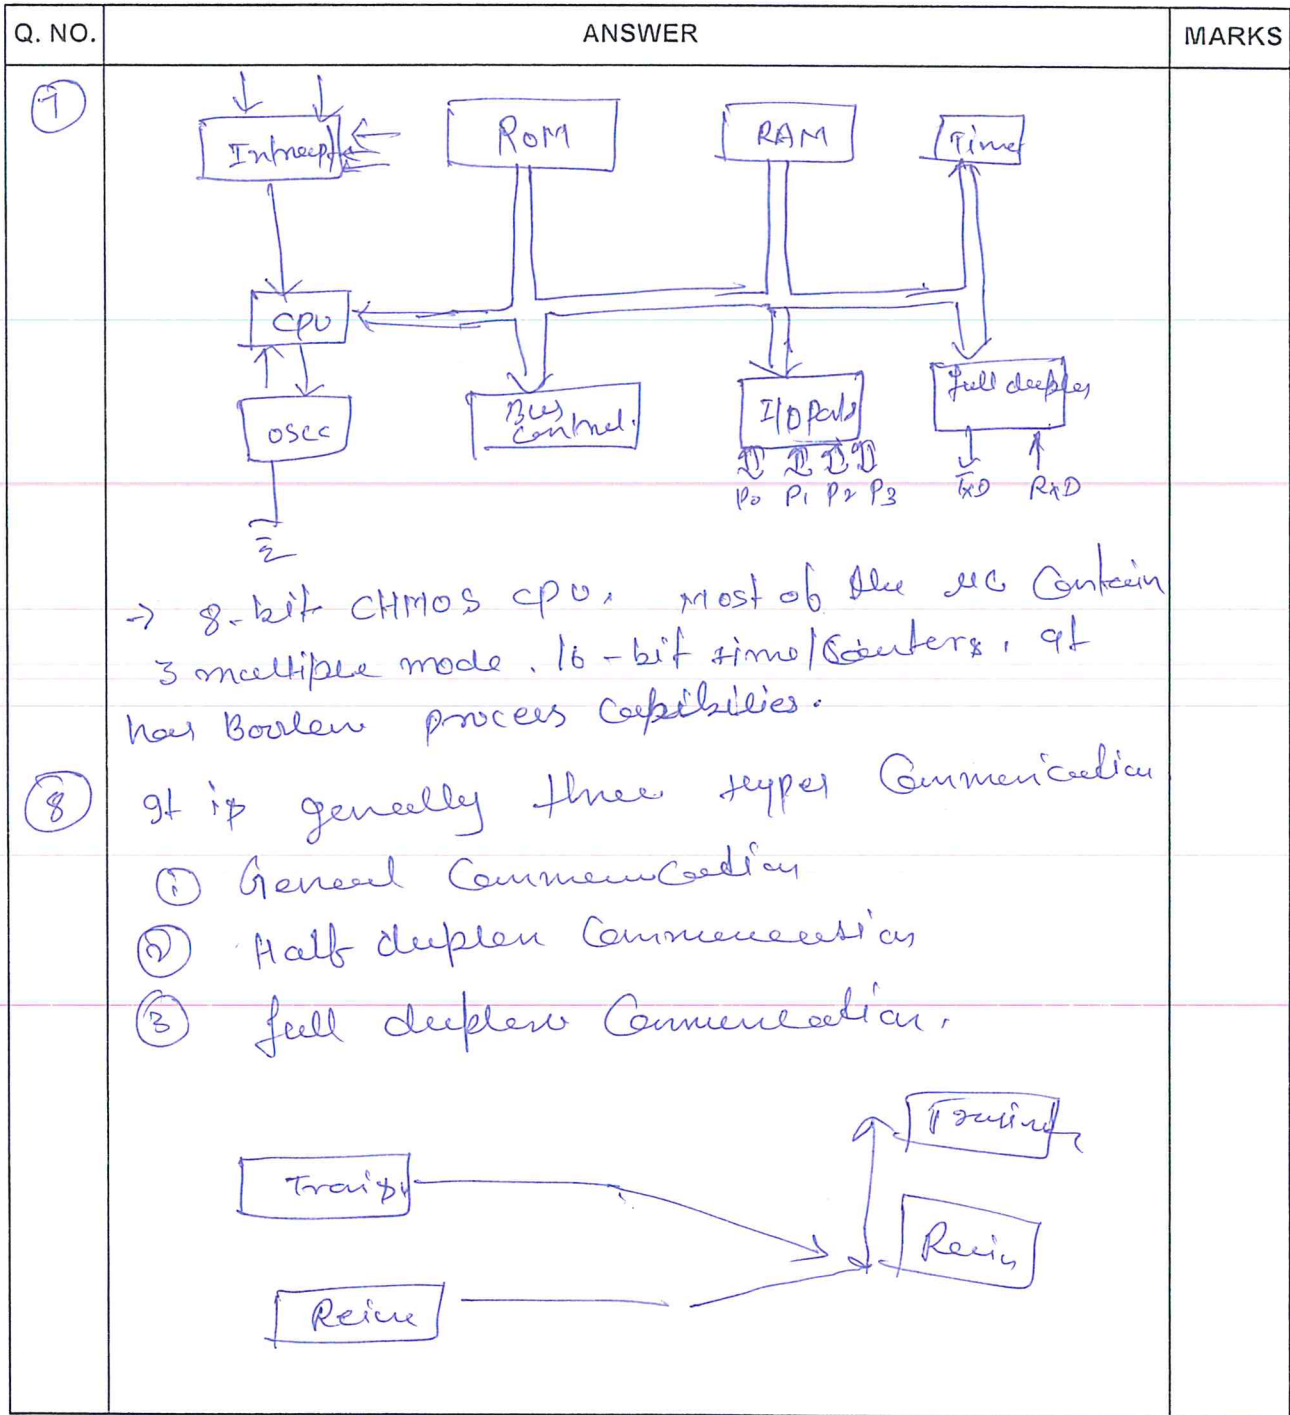 Q. NO. ANSWER MARKS
7
Intrrept ROM RAM Time
CPU
OSCC Bus I/O Ports full deuplex
control.
P0 P1 P2 P3 TXD RXD
→ 8-bit CHMOS CPU. Most of the uc Contain
3 multiple mode. 16-bit time/Counters, It
has Boolen process capibilies.
8 It is generlly three types Communication
1 General Communication
2 Half duplex Communication
3 full duplex Communication.
Trainsm
Reicve